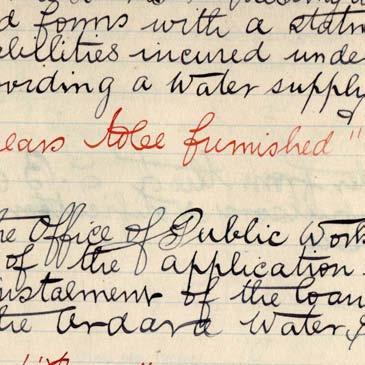 d forms with a statm
abilities incured unde
oviding a Water supply
&
ears to be furnished"
the Office of Public Work
of the application
instalment of the loan
the Ardara Water, &